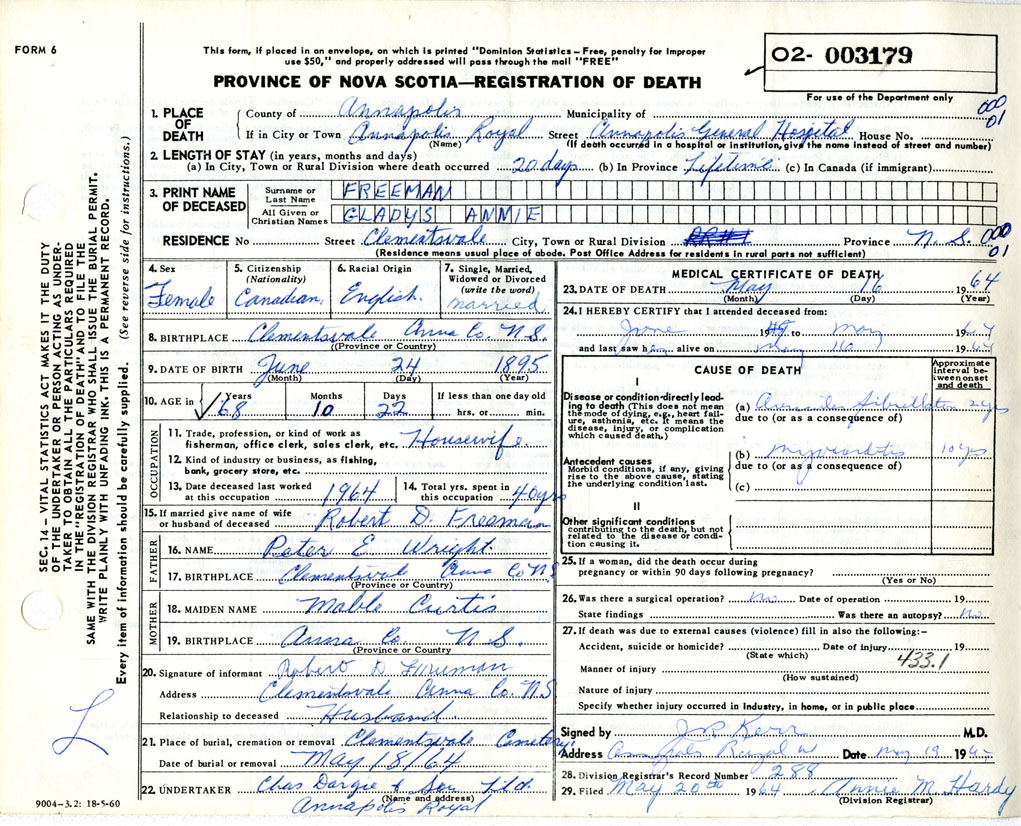 FORM 6
This form, if placed in an envelope, on which is printed "Dominion Statistics – Free, penalty for improper
use $50," and properly addressed will pass through the mail "FREE"
PROVINCE OF NOVA SCOTIA—REGISTRATION OF DEATH
02- 003179
For use of the Department only
000
01
1. PLACE OF DEATH
County of Annapolis Municipality of
If in City or Town Annapolis Royal Street Annapolis General Hospital House No.
(Name) (If death occurred in a hospital or institution, give the name instead of street and number)
2. LENGTH OF STAY (in years, months and days)
(a) In City, Town or Rural Division where death occurred 20 days (b) In Province Lifetime (c) In Canada (if immigrant)
3. PRINT NAME OF DECEASED
Surname or Last Name FREEMAN
All Given or Christian Names GLADYS ANNIE
RESIDENCE No Street Clementsvale City, Town or Rural Division RR#1 Province N.S. 000
01
(Residence means usual place of abode. Post Office Address for residents in rural parts not sufficient)
4. Sex Female
5. Citizenship (Nationality) Canadian
6. Racial Origin English.
7. Single, Married, Widowed or Divorced (write the word) married
8. BIRTHPLACE Clementsvale Anna Co. N.S.
(Province or Country)
9. DATE OF BIRTH June 24 1895
(Month) (Day) (Year)
10. AGE in Years Months Days If less than one day old
68 10 22 hrs. or min.
OCCUPATION
11. Trade, profession, or kind of work as
fisherman, office clerk, sales clerk, etc. Housewife
12. Kind of industry or business, as fishing,
bank, grocery store, etc.
13. Date deceased last worked at this occupation 1964
14. Total yrs. spent in this occupation 40 yrs
15. If married give name of wife or husband of deceased Robert D. Freeman
FATHER
16. NAME Peter E Wright.
17. BIRTHPLACE Clementsvale Anna Co N S
(Province or Country)
MOTHER
18. MAIDEN NAME Mable Curtis
19. BIRTHPLACE Anna Co. N S.
(Province or Country)
20. Signature of informant Robert D Freeman
Address Clementsvale Anna Co. N.S
Relationship to deceased Husband.
21. Place of burial, cremation or removal Clementsvale Cemetery
Date of burial or removal May 18/64
22. UNDERTAKER Chas Dargie & Son Ltd.
(Name and address)
Annapolis Royal
9004–3.2: 18-5-60
MEDICAL CERTIFICATE OF DEATH
23. DATE OF DEATH May 16 1964
(Month) (Day) (Year)
24. I HEREBY CERTIFY that I attended deceased from:
June 19 to May 1964
and last saw h alive on May 16 1964
CAUSE OF DEATH
Approximate interval between onset and death
I
Disease or condition-directly leading to death (This does not mean the mode of dying, e.g., heart failure, asthenia, etc. It means the disease, injury, or complication which caused death.)
(a) Auricular fibrillation 2 yrs
due to (or as a consequence of)
Antecedent causes
Morbid conditions, if any, giving rise to the above cause, stating the underlying condition last.
(b) Myocarditis 10 yrs
due to (or as a consequence of)
(c)
II
Other significant conditions
contributing to the death, but not related to the disease or condition causing it.
25. If a woman, did the death occur during
pregnancy or within 90 days following pregnancy?
(Yes or No)
26. Was there a surgical operation? No Date of operation 19
State findings Was there an autopsy? No
27. If death was due to external causes (violence) fill in also the following:–
Accident, suicide or homicide? Date of injury 19
(State which) 433.1
Manner of injury
(How sustained)
Nature of injury
Specify whether injury occurred in industry, in home, or in public place
Signed by Kerr M.D.
Address Annapolis Royal Date May 19 196
28. Division Registrar's Record Number 288
29. Filed May 20th 1964 Annie M. Hardy
(Division Registrar)
SEC. 14 – VITAL STATISTICS ACT MAKES IT THE DUTY
OF THE UNDERTAKER OR PERSON ACTING AS UNDER-
TAKER TO OBTAIN ALL THE PARTICULARS REQUIRED
IN THE "REGISTRATION OF DEATH" AND TO FILE THE
SAME WITH THE DIVISION REGISTRAR WHO SHALL ISSUE THE BURIAL PERMIT.
WRITE PLAINLY WITH UNFADING INK. THIS IS A PERMANENT RECORD.
Every item of information should be carefully supplied. (See reverse side for instructions.)
L